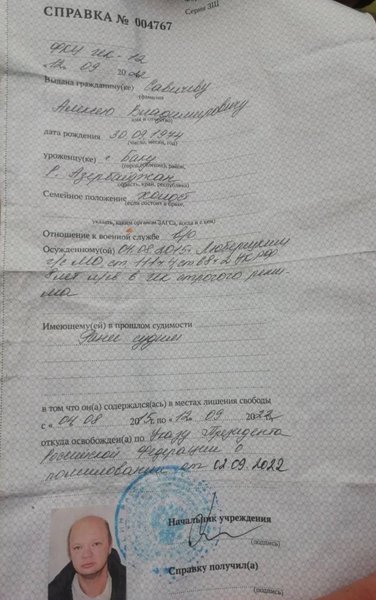 Форма
Серия ЗШ
СПРАВКА № 004767
ФКУ ИК-12
«12» 09 2022
Выдана гражданину(ке) Савичеву
фамилия
Алексею Владимировичу
имя и отчество
дата рождения 30.09.1974
(число, месяц, год)
уроженцу(ке) г. Баку
(город, район,
Р. Азербайджан
область, край, республика)
Семейное положение холост
(если состоит в браке,
указать, каким органом ЗАГСа, когда и с кем)
Отношение к военной службе в/о
Осужденному(ой) 04.08.2015г. Люберецким
г/с МО ст 111 ч 4 ст 88 ч 2 УК РФ
лет л/св в ИК строгого режи-
ма
Имеющему(ей) в прошлом судимости
Ранее судим
в том что он(а) содержался(ась) в местах лишения свободы
с «04» 08 2015г. по «12» 09 2022г.
откуда освобожден(а) по Указу Президента
Российской Федерации о
помиловании от 02.09.2022
Начальник учреждения
(подпись)
Справку получил(а)
(подпись)